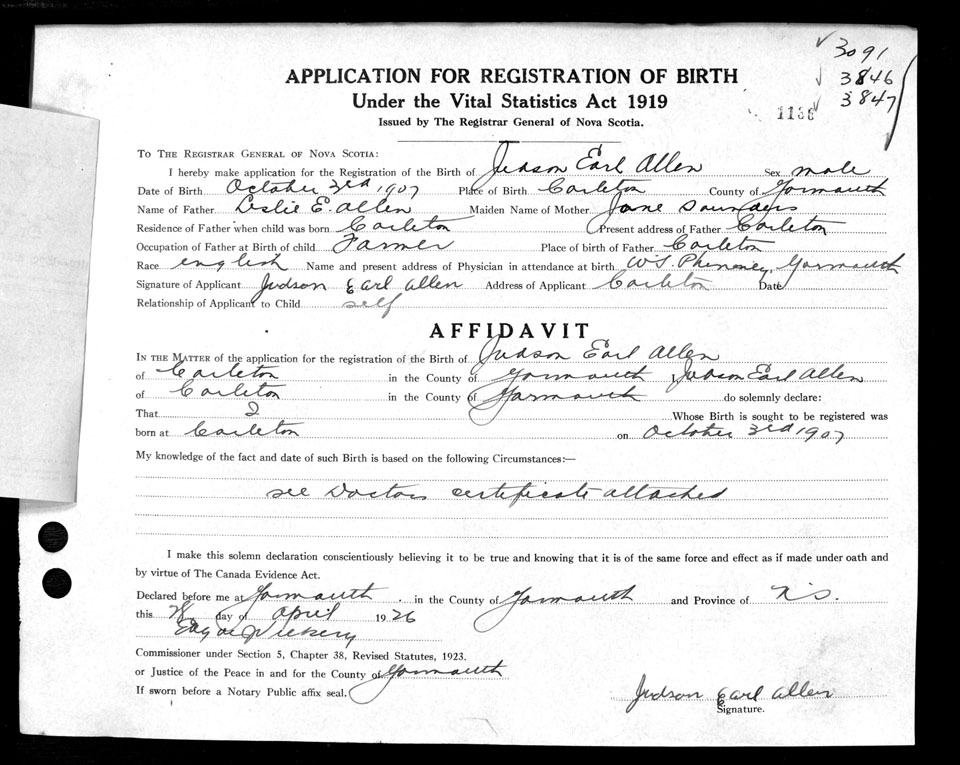 3091
3846
3847
APPLICATION FOR REGISTRATION OF BIRTH
Under the Vital Statistics Act 1919
1136
Issued by The Registrar General of Nova Scotia.
TO THE REGISTRAR GENERAL OF NOVA SCOTIA:
I hereby make application for the Registration of the Birth of Judson Earl Allen Sex male
Date of Birth October 3rd 1907 Place of Birth Carleton County of Yarmouth
Name of Father Leslie E. Allen Maiden Name of Mother Jane Saunders
Residence of Father when child was born Carleton Present address of Father Carleton
Occupation of Father at Birth of child Farmer Place of birth of Father Carleton
Race english Name and present address of Physician in attendance at birth Phinney, Yarmouth
Signature of Applicant Judson Earl Allen Address of Applicant Carleton Date
Relationship of Applicant to Child self
AFFIDAVIT
IN THE MATTER of the application for the registration of the Birth of Judson Earl Allen
of Carleton in the County of Yarmouth I, Judson Earl Allen
of Carleton in the County of Yarmouth do solemnly declare:
That I Whose Birth is sought to be registered was
born at Carleton on October 3rd 1907
My knowledge of the fact and date of such Birth is based on the following Circumstances:—
see Doctors certificate attached
I make this solemn declaration conscientiously believing it to be true and knowing that it is of the same force and effect as if made under oath and
by virtue of The Canada Evidence Act.
Declared before me at Yarmouth in the County of Yarmouth and Province of N.S.
this day of April 1926
Commissioner under Section 5, Chapter 38, Revised Statutes, 1923.
or Justice of the Peace in and for the County of Yarmouth
If sworn before a Notary Public affix seal.
Judson Earl Allen
Signature.